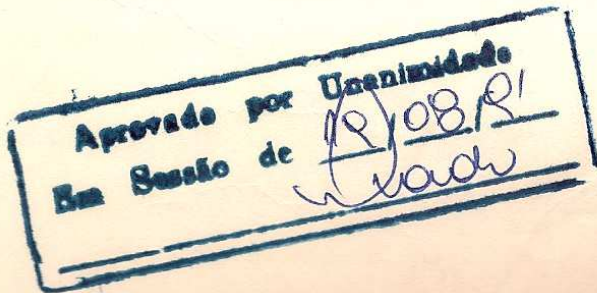 Aprovado por Unanimidade
Em Sessão de 19/08/91